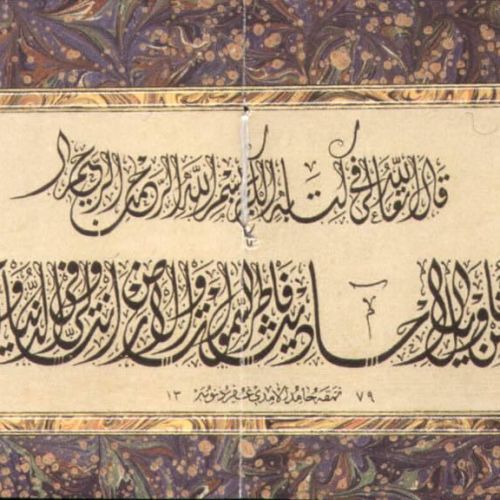 قال الله تعالى في كتابه الكريم بسم الله الرحمن الرحيم
من تأويل الاحاديث فاطر السموات والارض انت ولي في الدنيا و
٧٩ نمقه حامد الآمدي غفر ذنوبه ١٣